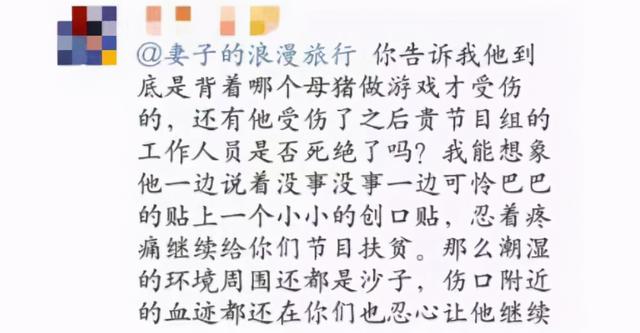 @妻子的浪漫旅行 你告诉我他到
底是背着哪个母猪做游戏才受伤
的，还有他受伤了之后贵节目组的
工作人员是否死绝了吗？我能想象
他一边说着没事没事一边可怜巴巴
的贴上一个小小的创口贴，忍着疼
痛继续给你们节目扶贫。那么潮湿
的环境周围还都是沙子，伤口附近
的血迹都还在你们也忍心让他继续